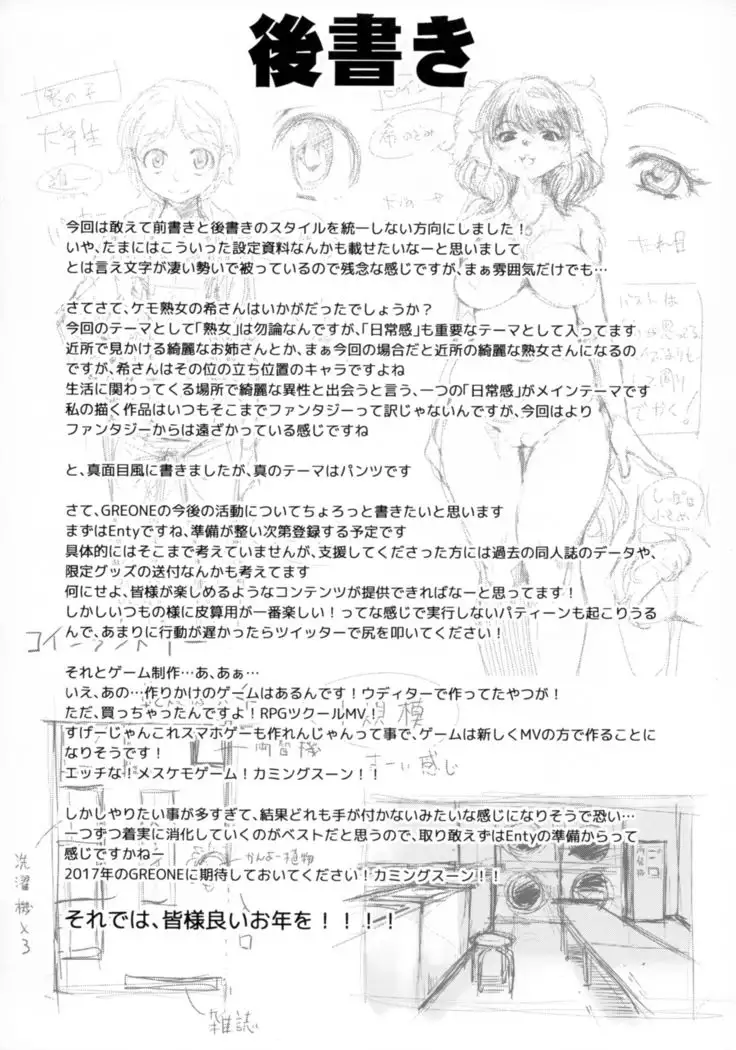 後書き
大学生
たれ目
今回は敢えて前書きと後書きのスタイルを統一しない方向にしました！
いや、たまにはこういった設定資料なんかも載せたいなーと思いまして
とは言え文字が凄い勢いで被っているので残念な感じですが、まぁ雰囲気だけでも…
さてさて、ケモ熟女の希さんはいかがだったでしょうか？
今回のテーマとして「熟女」は勿論なんですが、「日常感」も重要なテーマとして入ってます
近所で見かける綺麗なお姉さんとか、まぁ今回の場合だと近所の綺麗な熟女になるの
ですが、希さんはその位の立ち位置のキャラですよね
生活に関わってくる場所で綺麗な異性と出会うと言う、一つの「日常感」がメインテーマです
私の描く作品はいつもそこまでファンタジーって訳じゃないんですが、今回はより
ファンタジーからは遠ざかっている感じですね
と、真面目風に書きましたが、真のテーマはパンツです
さて、GREONEの今後の活動についてちょろっと書きたいと思います
まずはEntyですね、準備が整い次第登録する予定です
具体的にはそこまで考えていませんが、支援してくださった方には過去の同人誌のデータや、
限定グッズの送付なんかも考えてます
何にせよ、皆様が楽しめるようなコンテンツが提供できればなーと思ってます！
しかしいつもの様に皮算用が一番楽しい！ってな感じで実行しないパティーンも起こりうる
んで、あまりに行動が遅かったらツイッターで尻を叩いてください！
コインランドリー
それとゲーム制作…あ、あぁ…
いえ、あの…作りかけのゲームはあるんです！ウディターで作ってたやつが！
ただ、買っちゃったんですよ！RPGツクールMV！
すげーじゃんこれスマホゲーも作れんじゃんって事で、ゲームは新しくMVの方で作ることに
なりそうです！
エッチな！メスケモゲーム！カミングスーン！！
しかしやりたい事が多すぎて、結果どれも手が付かないみたいな感じになりそうで恐い…
一つずつ着実に消化していくのがベストだと思うので、取り敢えずはEntyの準備からって
感じですかねー
2017年のGREONEに期待しておいてください！カミングスーン！！
それでは、皆様良いお年を！！！！
かんよー植物
洗濯機×3
雑誌